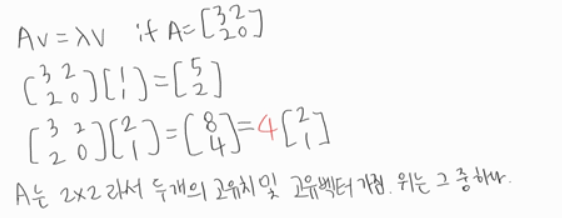 Av = λv if A = [3 2 2 0]
[3 2 2 0][1 1] = [5 2]
[3 2 2 0][2 1] = [8 4] = 4[2 1]
A는 2x2 라서 두개의 고유치 및 고유벡터 가짐. 위는 그 중 하나.